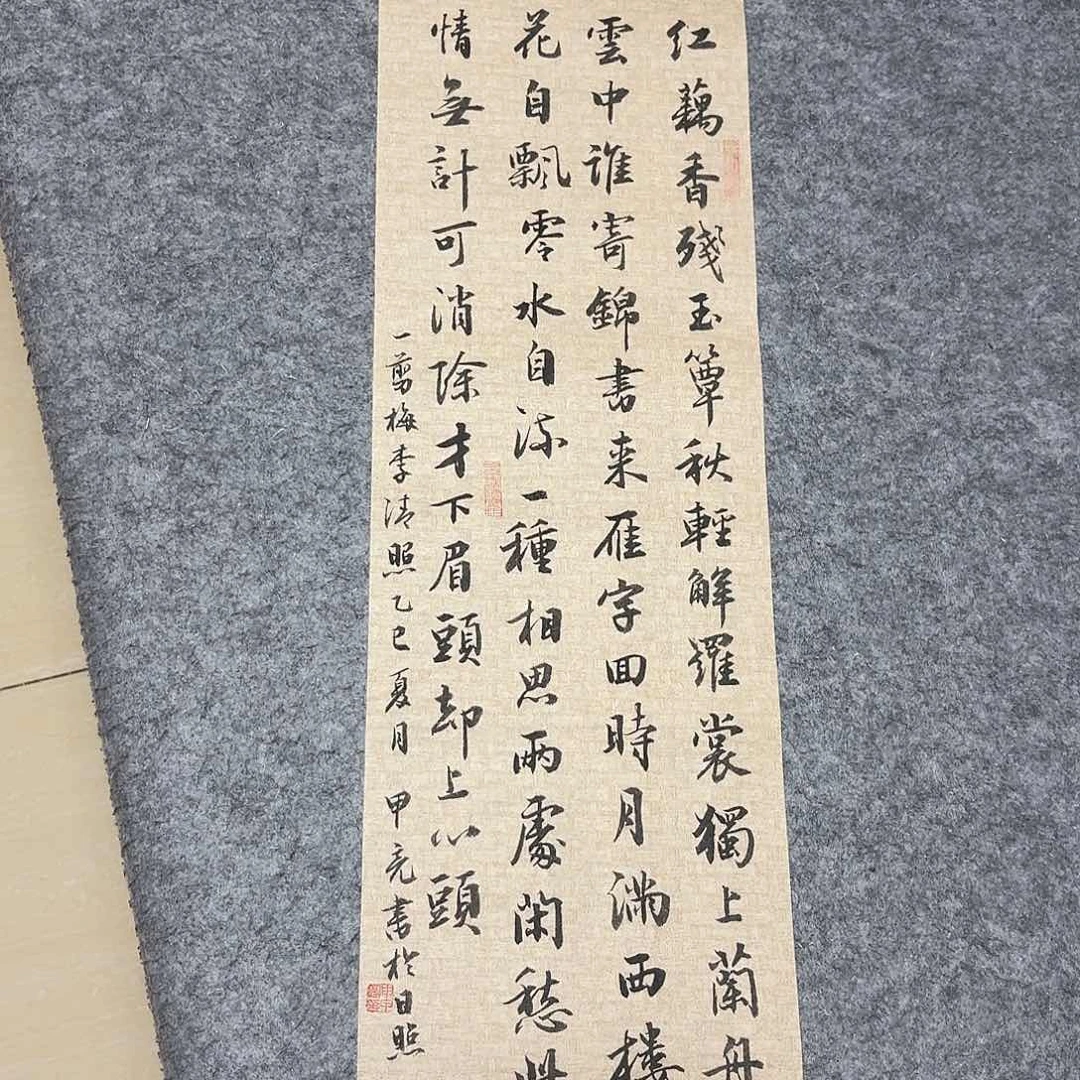 红藕香殘玉簟秋輕解羅裳獨上蘭舟
雲中誰寄錦書來雁字回時月滿西樓
花自飄零水自流一種相思兩處閑愁此
情無計可消除才下眉頭却上心頭
一剪梅李清照乙巳夏月甲亮書於日照